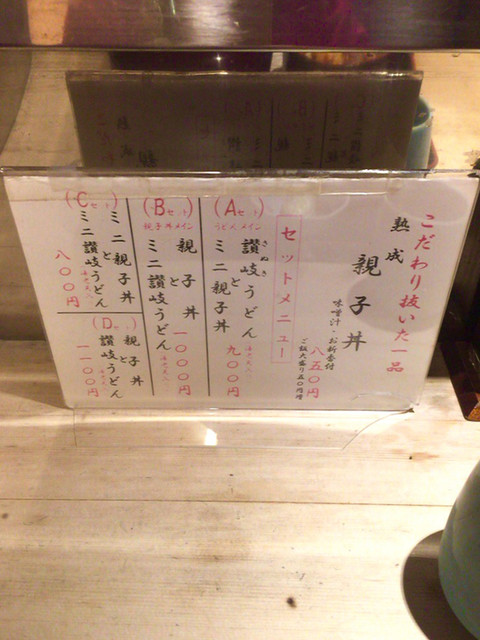 こだわり抜いた一品
熟成 親子丼
味噌汁・お新香付
八五〇円
ご飯大盛り五〇円増
セットメニュー
(Aセット)
うどんメイン
さぬき
讃岐うどん
と
ミニ親子丼
九〇〇円
(Bセット)
親子丼メイン
親子丼
と
ミニ讃岐うどん
一〇〇〇円
(Cセット)
ミニ親子丼
と
ミニ讃岐うどん
八〇〇円
(Dセット)
親子丼
と
讃岐うどん
一一〇〇円